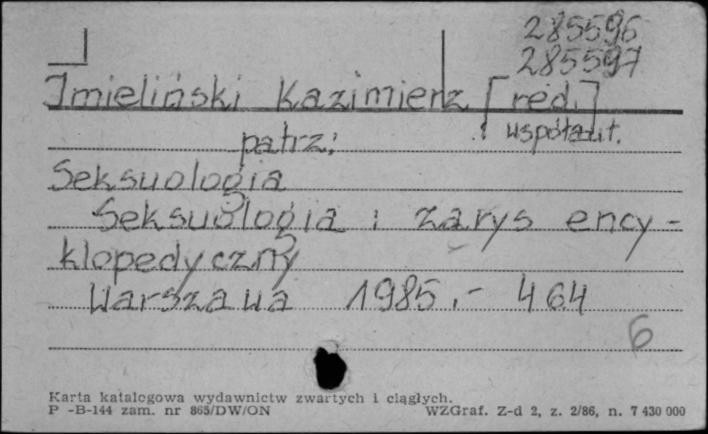 285596
285597
Imieliński Kazimierz [red.]
patrz: i współaut.
Seksuologia
Seksuologia : zarys ency-
klopedyczny
Warszawa 1985.- 464
6
Karta katalogowa wydawnictw zwartych i ciągłych.
P -B-144 zam. nr 865/DW/ON WZGraf. Z-d 2, z. 2/86, n. 7 430 000